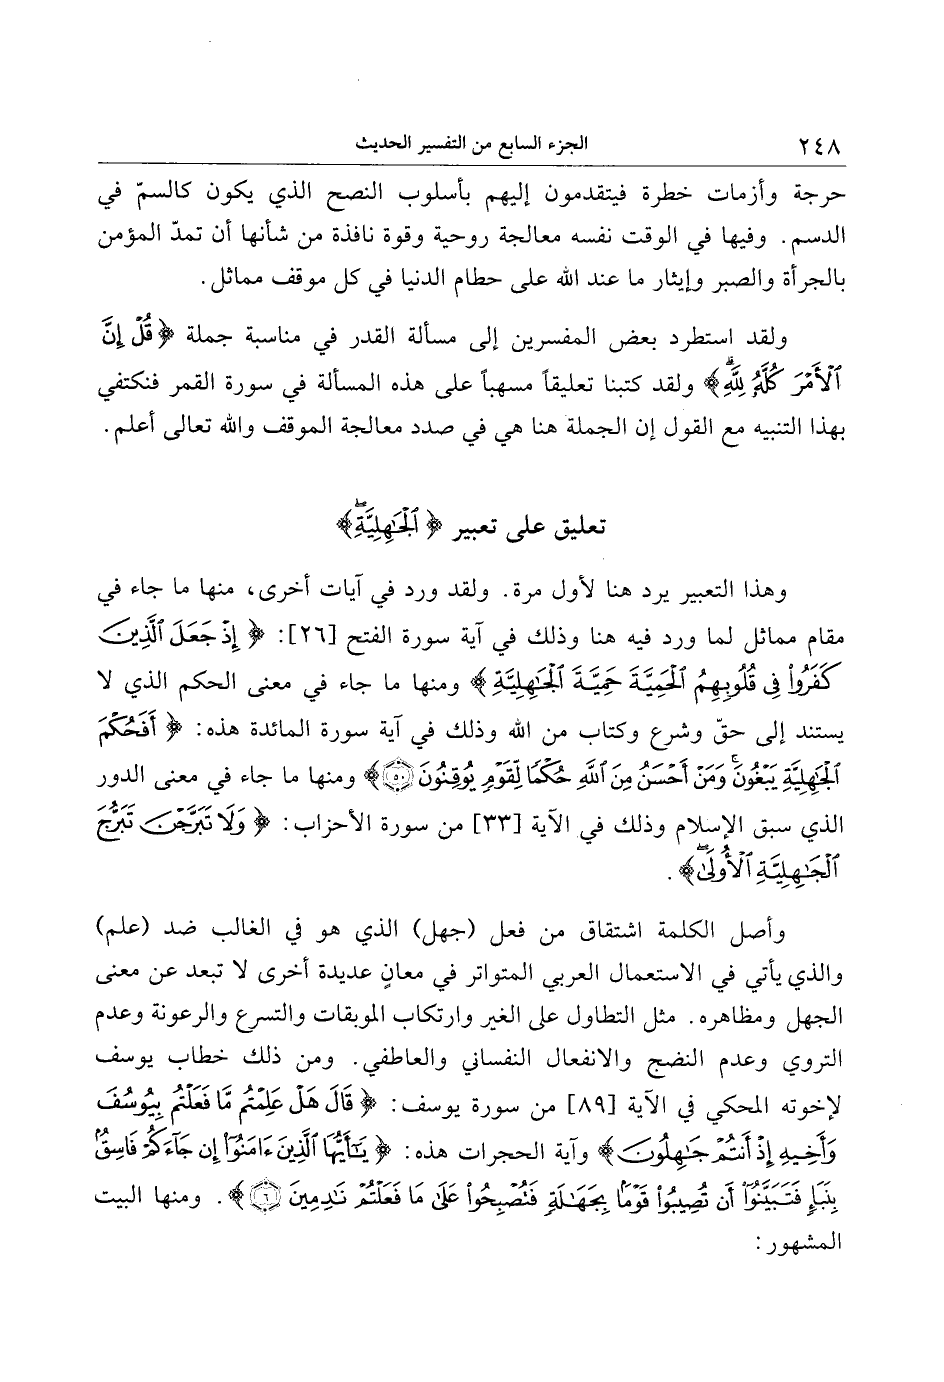 ٢٤٨ الجزء السابع من التفسير الحديث
حرجة وأزمات خطرة فيتقدمون إليهم بأسلوب النصح الذي يكون كالسمّ في
الدسم. وفيها في الوقت نفسه معالجة روحية وقوة نافذة من شأنها أن تمدّ المؤمن
بالجرأة والصبر وإيثار ما عند الله على حطام الدنيا في كل موقف مماثل.
ولقد استطرد بعض المفسرين إلى مسألة القدر في مناسبة جملة ﴿قُلْ إِنَّ
ٱلْأَمْرَ كُلَّهُۥ لِلَّهِۗ﴾ ولقد كتبنا تعليقاً مسهباً على هذه المسألة في سورة القمر فنكتفي
بهذا التنبيه مع القول إن الجملة هنا هي في صدد معالجة الموقف والله تعالى أعلم.
تعليق على تعبير ﴿ٱلْجَٰهِلِيَّةِۖ﴾
وهذا التعبير يرد هنا لأول مرة. ولقد ورد في آيات أخرى، منها ما جاء في
مقام مماثل لما ورد فيه هنا وذلك في آية سورة الفتح [٢٦]: ﴿إِذْ جَعَلَ ٱلَّذِينَ
كَفَرُوا۟ فِى قُلُوبِهِمُ ٱلْحَمِيَّةَ حَمِيَّةَ ٱلْجَٰهِلِيَّةِ﴾ ومنها ما جاء في معنى الحكم الذي لا
يستند إلى حقّ وشرع وكتاب من الله وذلك في آية سورة المائدة هذه: ﴿أَفَحُكْمَ
ٱلْجَٰهِلِيَّةِ يَبْغُونَۚ وَمَنْ أَحْسَنُ مِنَ ٱللَّهِ حُكْمًا لِّقَوْمٍ يُوقِنُونَ ۝٥٠﴾ ومنها ما جاء في معنى الدور
الذي سبق الإسلام وذلك في الآية [٣٣] من سورة الأحزاب: ﴿وَلَا تَبَرَّجْنَ تَبَرُّجَ
ٱلْجَٰهِلِيَّةِ ٱلْأُولَىٰۖ﴾.
وأصل الكلمة اشتقاق من فعل (جهل) الذي هو في الغالب ضد (علم)
والذي يأتي في الاستعمال العربي المتواتر في معانٍ عديدة أخرى لا تبعد عن معنى
الجهل ومظاهره. مثل التطاول على الغير وارتكاب الموبقات والتسرع والرعونة وعدم
التروي وعدم النضج والانفعال النفساني والعاطفي. ومن ذلك خطاب يوسف
لإخوته المحكي في الآية [٨٩] من سورة يوسف: ﴿قَالَ هَلْ عَلِمْتُم مَّا فَعَلْتُم بِيُوسُفَ
وَأَخِيهِ إِذْ أَنتُمْ جَٰهِلُونَ﴾ وآية الحجرات هذه: ﴿يَٰٓأَيُّهَا ٱلَّذِينَ ءَامَنُوٓا۟ إِن جَآءَكُمْ فَاسِقٌۢ
بِنَبَإٍ فَتَبَيَّنُوٓا۟ أَن تُصِيبُوا۟ قَوْمًۢا بِجَهَٰلَةٍ فَتُصْبِحُوا۟ عَلَىٰ مَا فَعَلْتُمْ نَٰدِمِينَ ۝٦﴾. ومنها البيت
المشهور: